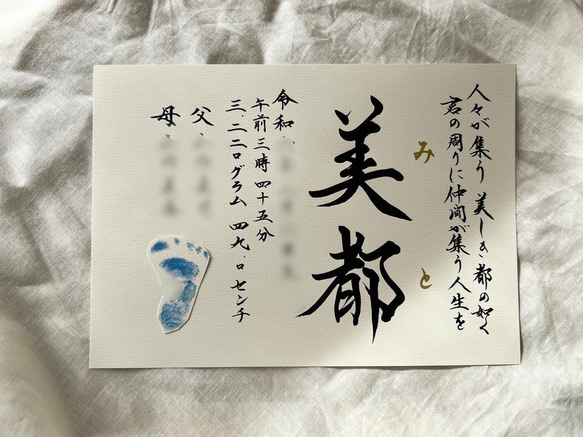 人々が集う 美しき都の如く
君の周りに仲間が集う人生を
みと
美都
令和
午前三時四十五分
三.二二〇グラム 四九.〇センチ
父
母